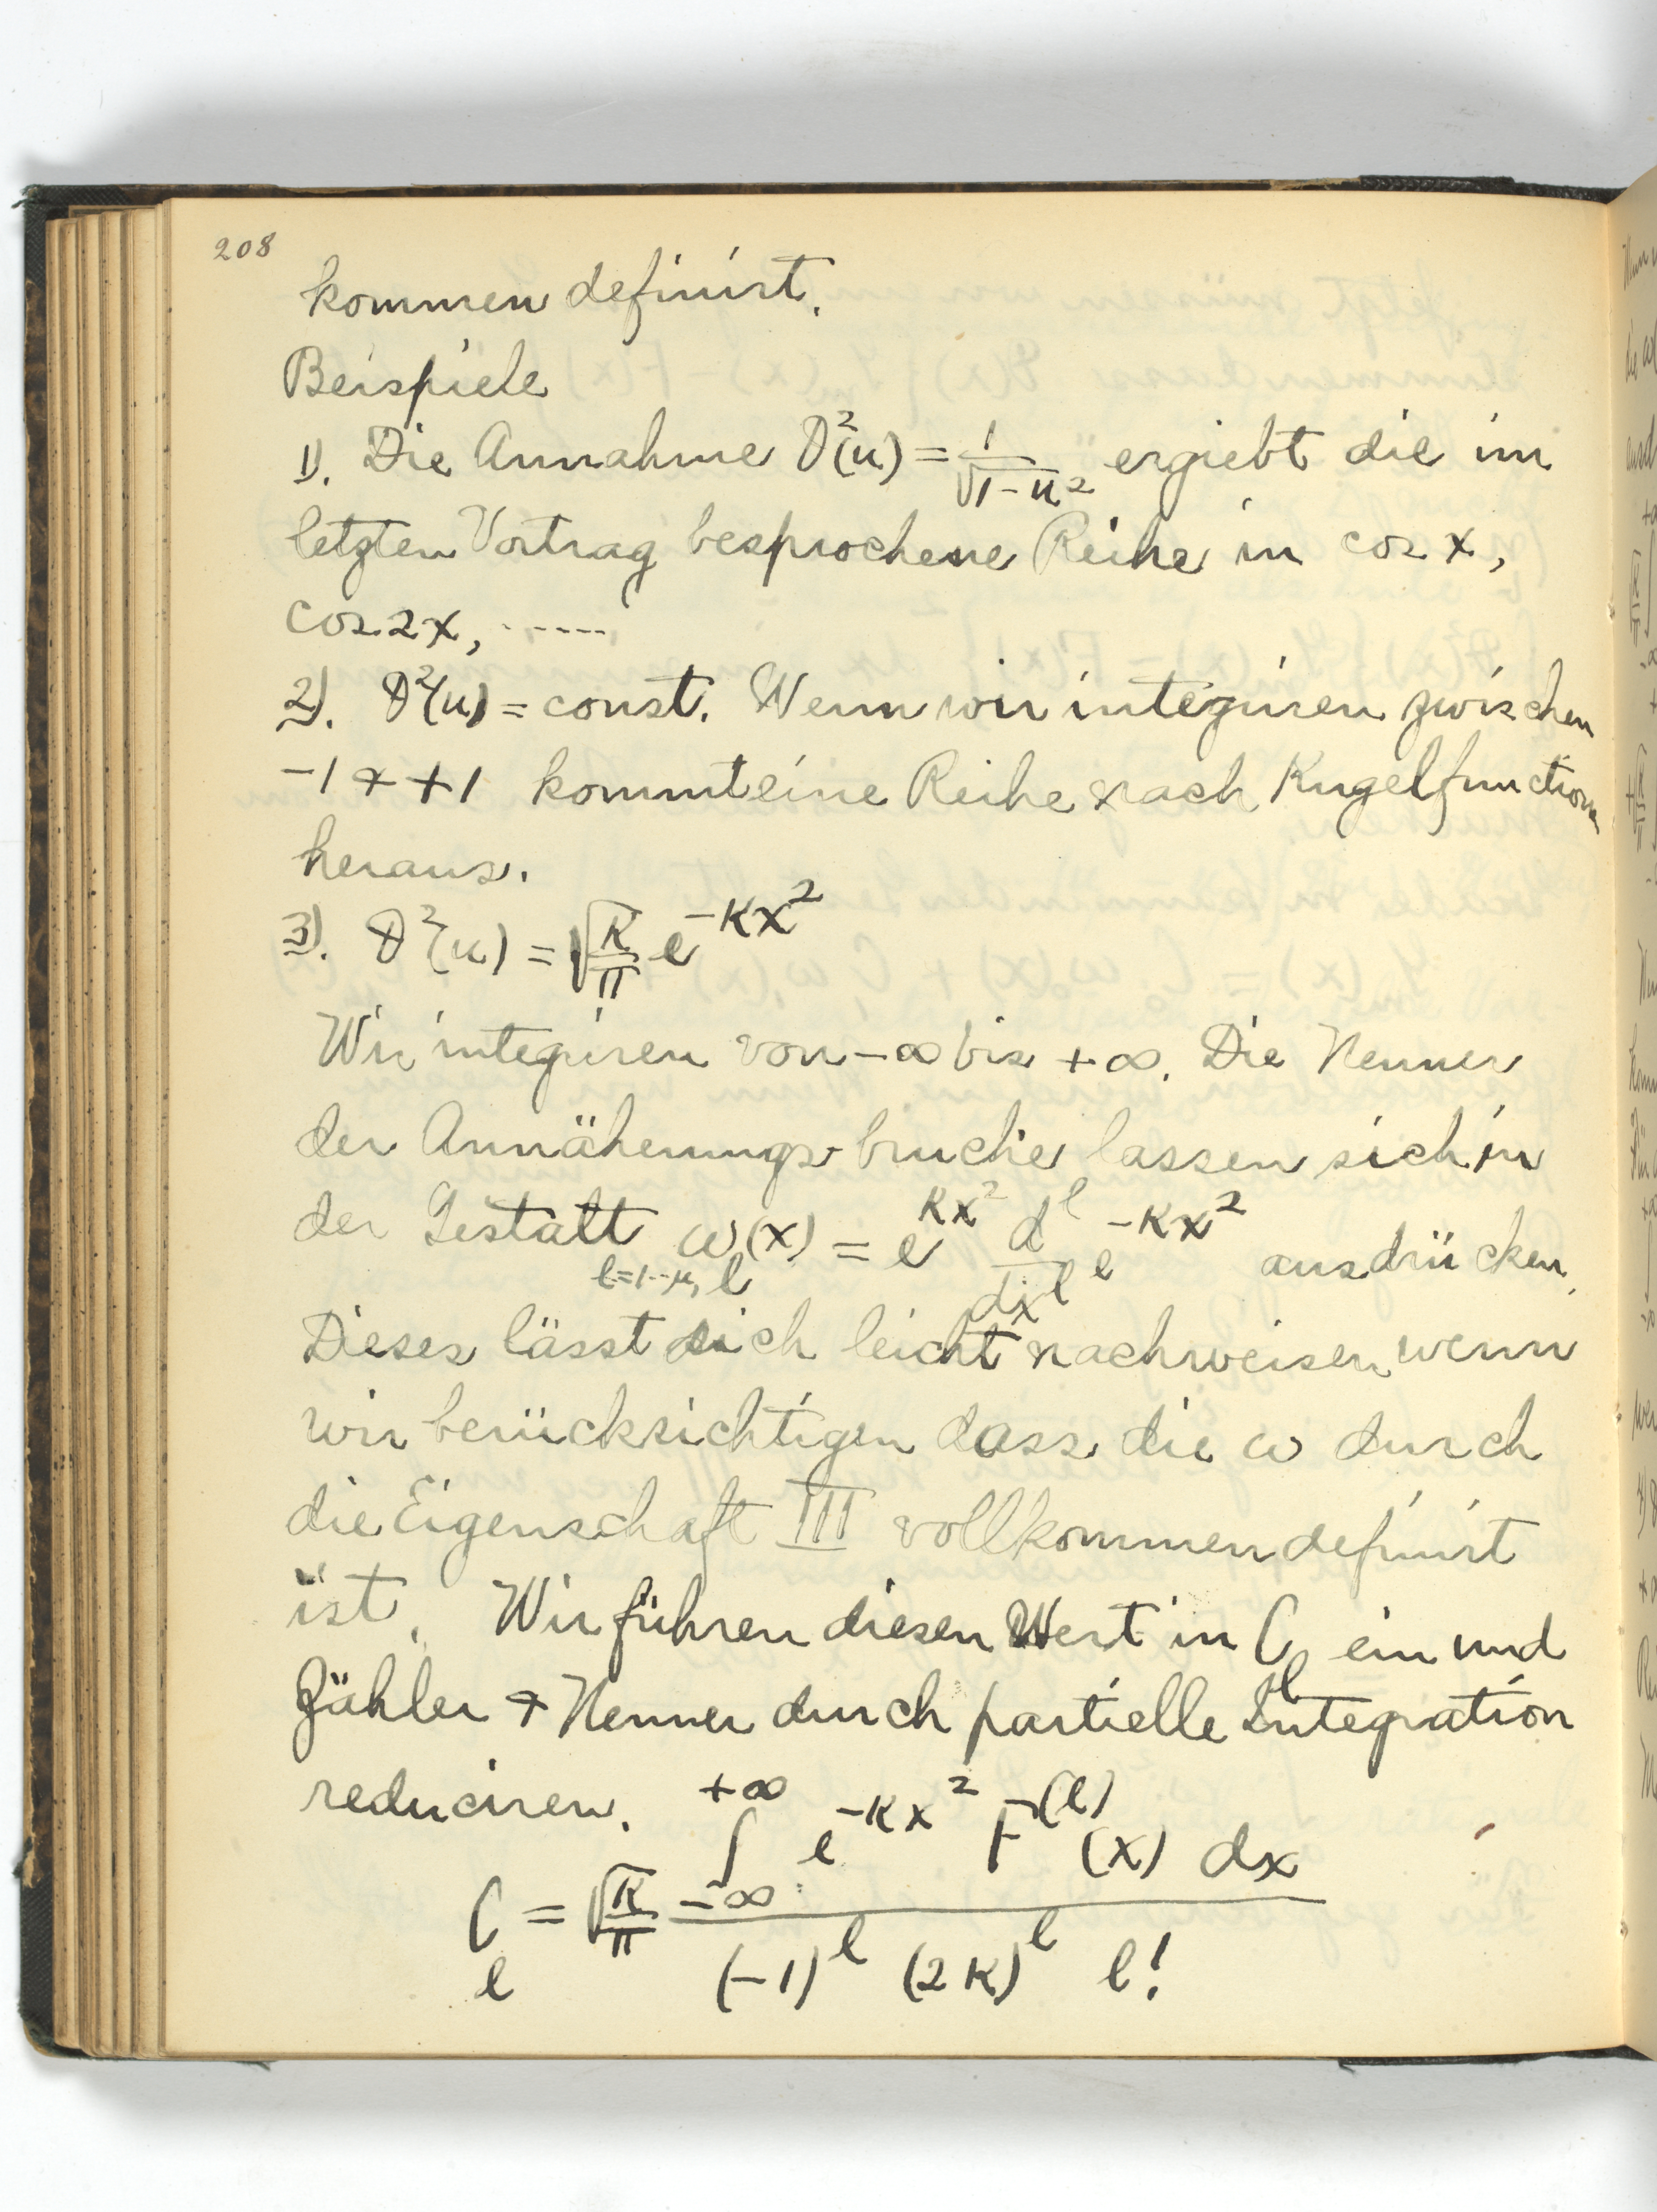 208
kommen definirt.
Beispiele
1). Die Annahme ϑ²(u) = 1/√(1-u²) ergiebt die im
letzten Vortrag besprochene Reihe in cos x,
cos 2x, ------
2). ϑ²(u) = const. Wenn wir integriren zwischen
-1 + +1 kommt eine Reihe nach Kugelfunctionen
heraus.
3). ϑ²(u) = √(K/π) e^(-Kx²)
Wir integriren von -∞ bis +∞. Die Nenner
der Annäherungsbruche lassen sich in
der Gestalt ω_l(x) = e^(Kx²) d^l/dx^l e^(-Kx²) ausdrücken.
l=1--μ,
Dieses lässt sich leicht nachweisen wenn
wir berücksichtigen dass die ω durch
die Eigenschaft III vollkommen definirt
ist. Wir führen diesen Wert in C_l ein und
Zähler + Nenner durch partielle Integration
reduciren.
C_l = √(K/π) ∫_{-∞}^{+∞} e^(-Kx²) F^(l)(x) dx / (-1)^l (2K)^l l!